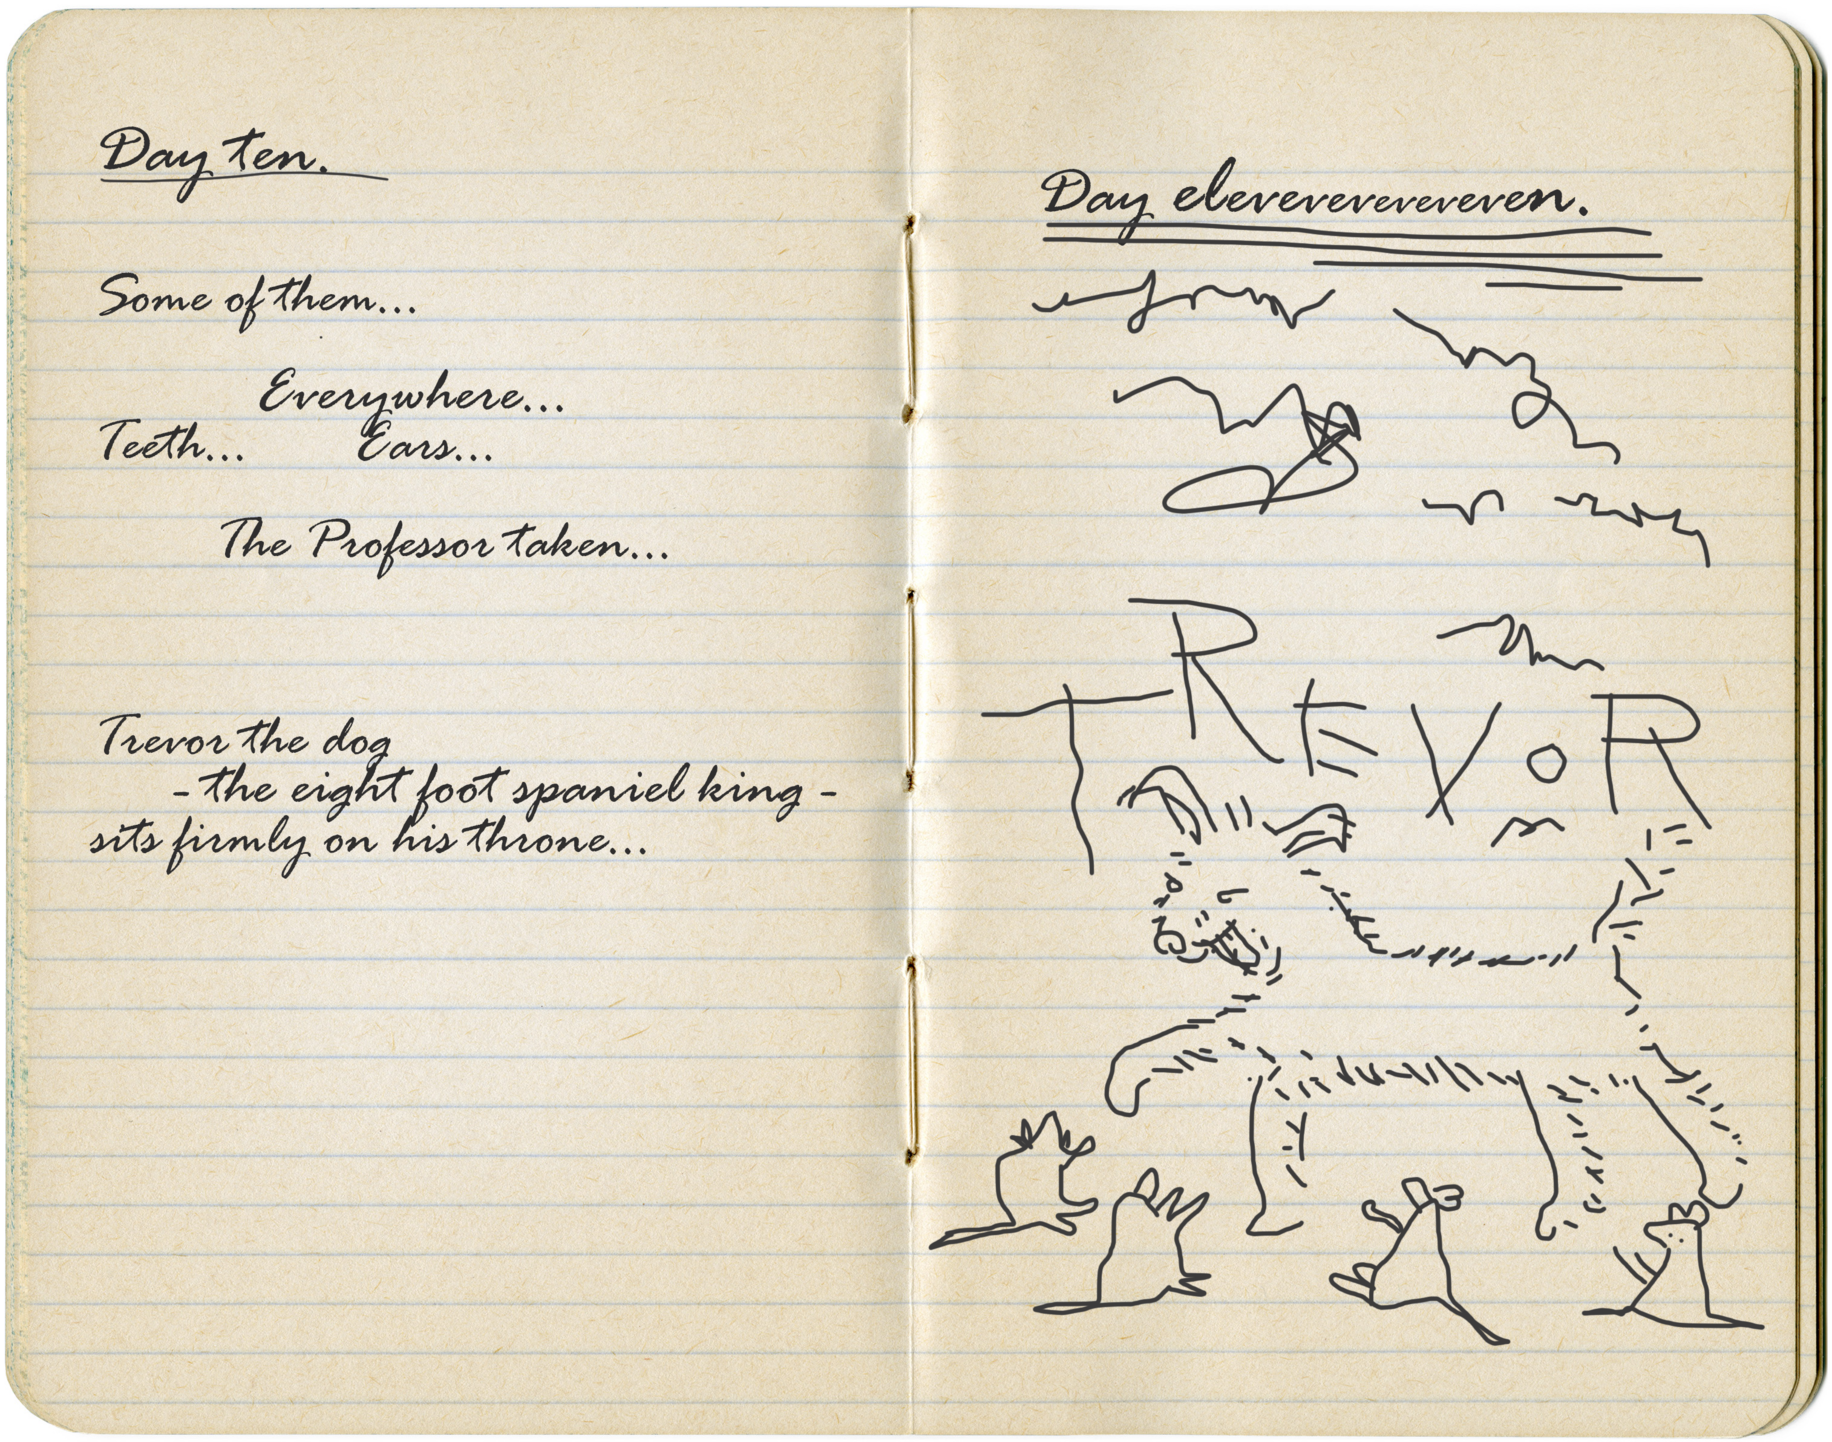 Day ten.
Some of them...
Everywhere...
Teeth... Ears...
The Professor taken...
Trevor the dog
- the eight foot spaniel king -
sits firmly on his throne...
Day eleveveveveveveven.
TREVOR